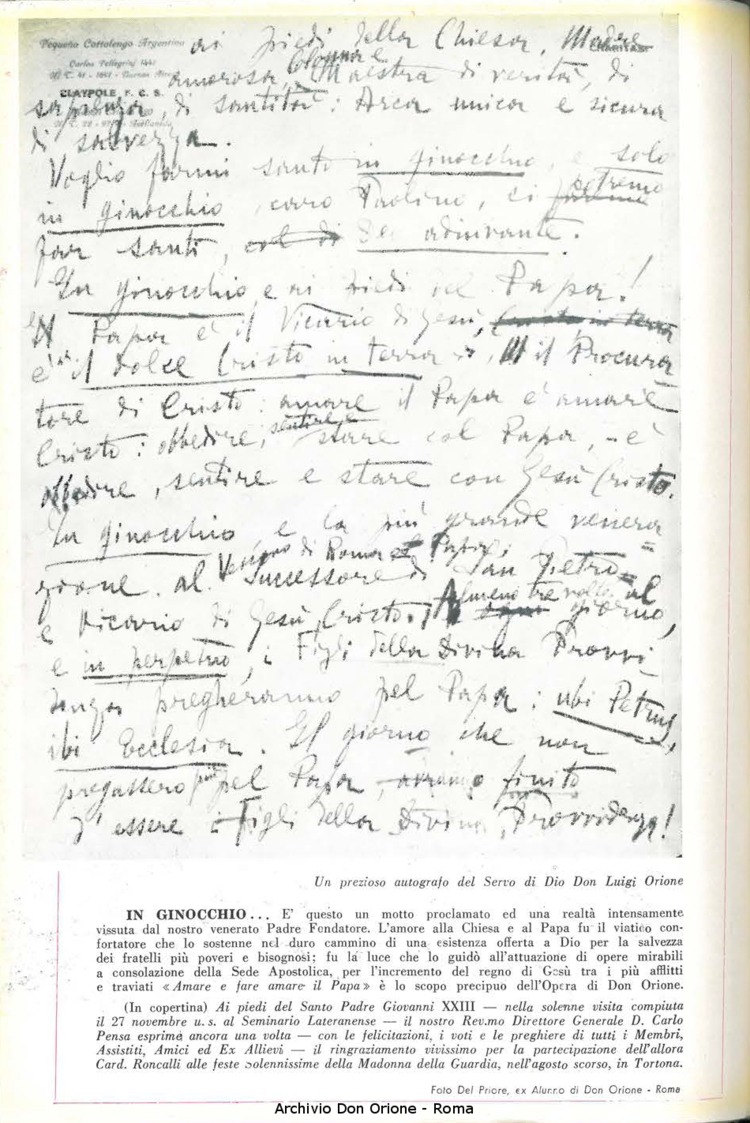 Pequeño Cottolengo Argentino
Carlos Pellegrini 1441
CLAYPOLE, F. C. S.
ai piedi della Chiesa, Madre
amorosa Colonna e Maestra di verità, di
sapienza, di santità: Arca unica e sicura
di salvezza.
Voglio farmi santo in ginocchio, e solo
in ginocchio, caro Paolino, ci potremo
far santi, ed adiuvante.
In ginocchio e ai piedi del Papa!
Il Papa è il Vicario di Gesù, Cristo in terra
è il dolce Cristo in terra il Procura
tore di Cristo: amare il Papa è amare
Cristo: obbedire, sentire e stare col Papa, - è
obbedire, sentire e stare con Gesù Cristo.
In ginocchio, e la più grande venera=
zione al Vescovo di Roma Papa, Successore di San Pietro
e Vicario di Gesù Cristo! Almeno tre volte al giorno,
e in perpetuo, i Figli della Divina Provvi
denza pregheranno pel Papa: ubi Petrus,
ibi Ecclesia. Il giorno che non
pregassero più pel Papa, avranno finito
d'essere i Figli della Divina Provvidenza!
Un prezioso autografo del Servo di Dio Don Luigi Orione
IN GINOCCHIO... E' questo un motto proclamato ed una realtà intensamente
vissuta dal nostro venerato Padre Fondatore. L'amore alla Chiesa e al Papa fu il viatico con-
fortatore che lo sostenne nel duro cammino di una esistenza offerta a Dio per la salvezza
dei fratelli più poveri e bisognosi; fu la luce che lo guidò all'attuazione di opere mirabili
a consolazione della Sede Apostolica, per l'incremento del regno di Gesù tra i più afflitti
e traviati «Amare e fare amare il Papa» è lo scopo precipuo dell'Opera di Don Orione.
(In copertina) Ai piedi del Santo Padre Giovanni XXIII — nella solenne visita compiuta
il 27 novembre u. s. al Seminario Lateranense — il nostro Rev.mo Direttore Generale D. Carlo
Pensa esprime ancora una volta — con le felicitazioni, i voti e le preghiere di tutti i Membri,
Assistiti, Amici ed Ex Allievi — il ringraziamento vivissimo per la partecipazione dell'allora
Card. Roncalli alle feste solennissime della Madonna della Guardia, nell'agosto scorso, in Tortona.
Foto Del Priore, ex Alunno di Don Orione - Roma
Archivio Don Orione - Roma